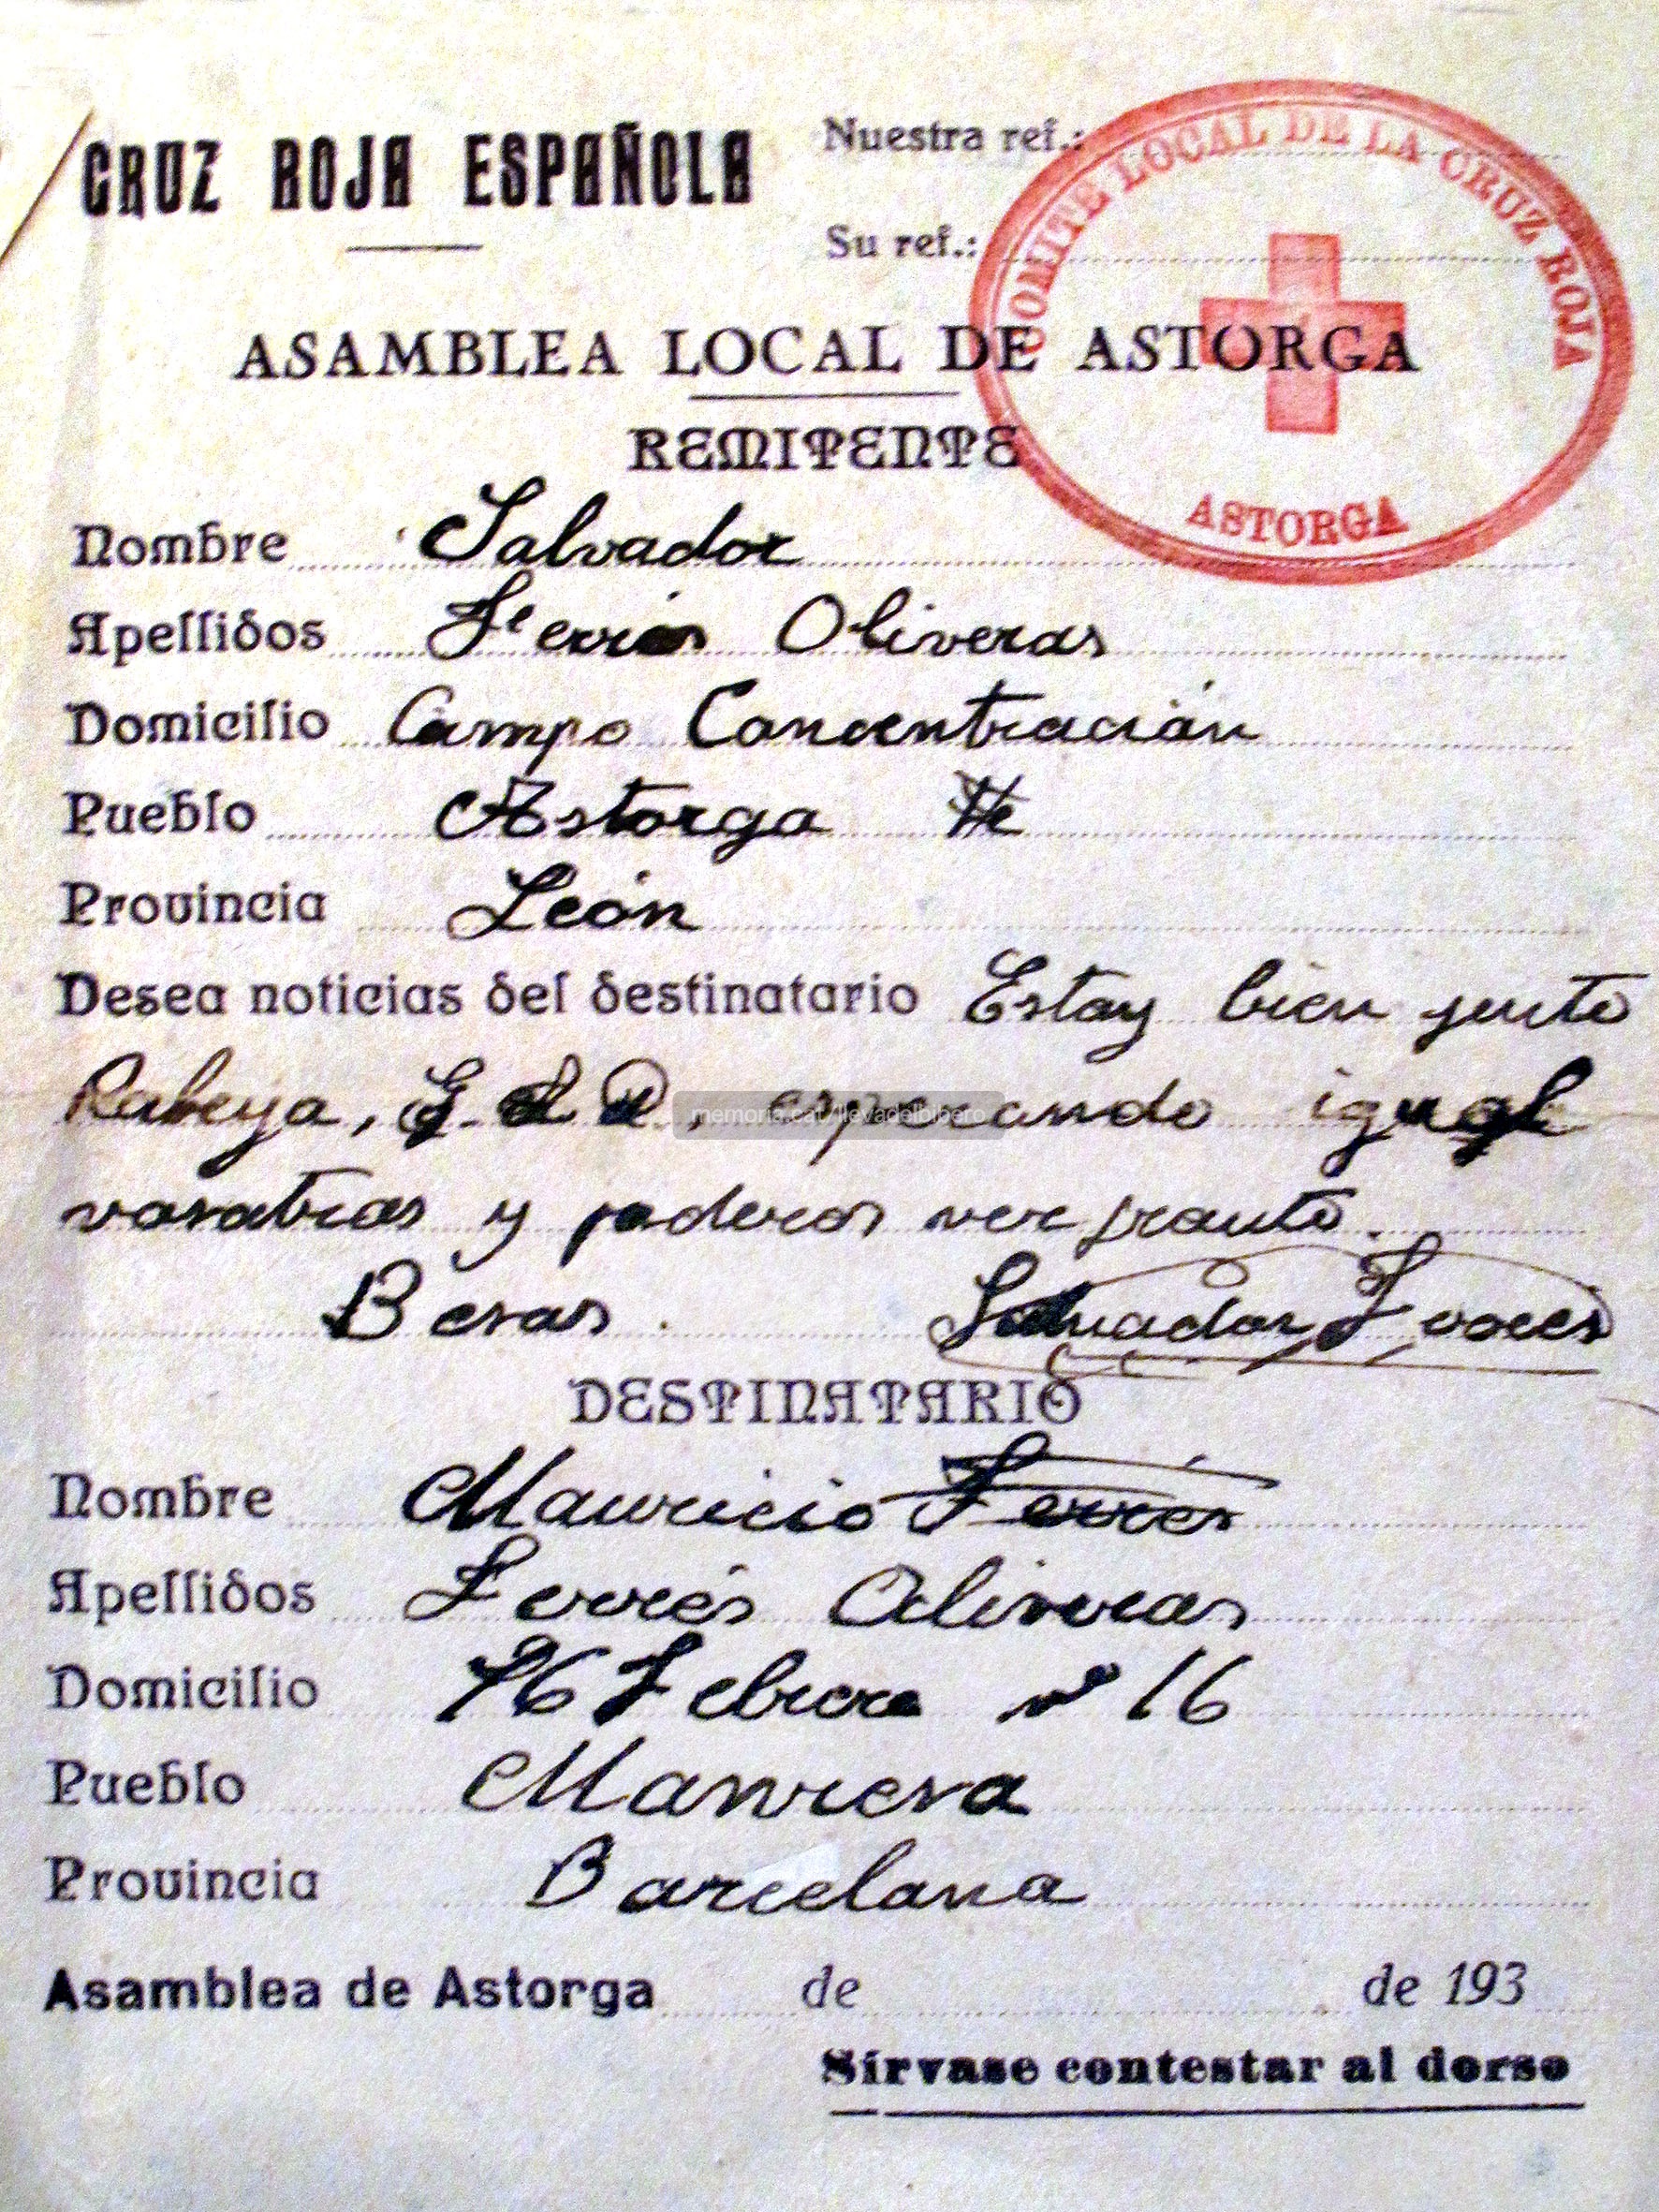 CRUZ ROJA ESPAÑOLA
Nuestra ref.:
Su ref.:
COMITE LOCAL DE LA CRUZ ROJA
ASTORGA
ASAMBLEA LOCAL DE ASTORGA
REMITENTE
Nombre Salvador
Apellidos Ferrés Oliveras
Domicilio Campo Concentración
Pueblo Astorga
Provincia León
Desea noticias del destinatario Estoy bien junto
Rabeya, esperando igual
vosotros y poderos ver pronto.
Besos. Salvador Ferrés
DESTINATARIO
Nombre Mauricio Ferrés
Apellidos Ferrés Oliveras
Domicilio 16 Febrero nº 16
Pueblo Manresa
Provincia Barcelona
Asamblea de Astorga de de 193
Sírvase contestar al dorso
memoria.cat/llevadelbibero